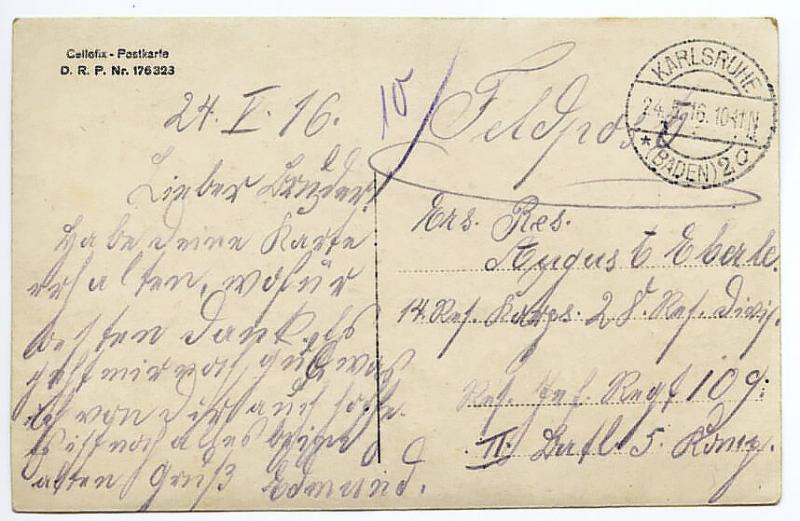 Cellofix - Postkarte
D. R. P. Nr. 176323
24. V. 16.
Lieber Bruder!
Habe deine Karte
erhalten, wofür
besten Dank. Es
geht mir noch gut, was
ich von Dir auch hoffe.
Es ist noch alles beim
alten Gruß Edmund.
10
Feldpost
KARLSRUHE
24.5.16. 10-11 N
* (BADEN) 2 c
Ers. Res.
August Eberle.
14. Res. Korps. 28. Res. Divis.
Res. Inf. Regt 109.
II. Batl. 5. Komp.